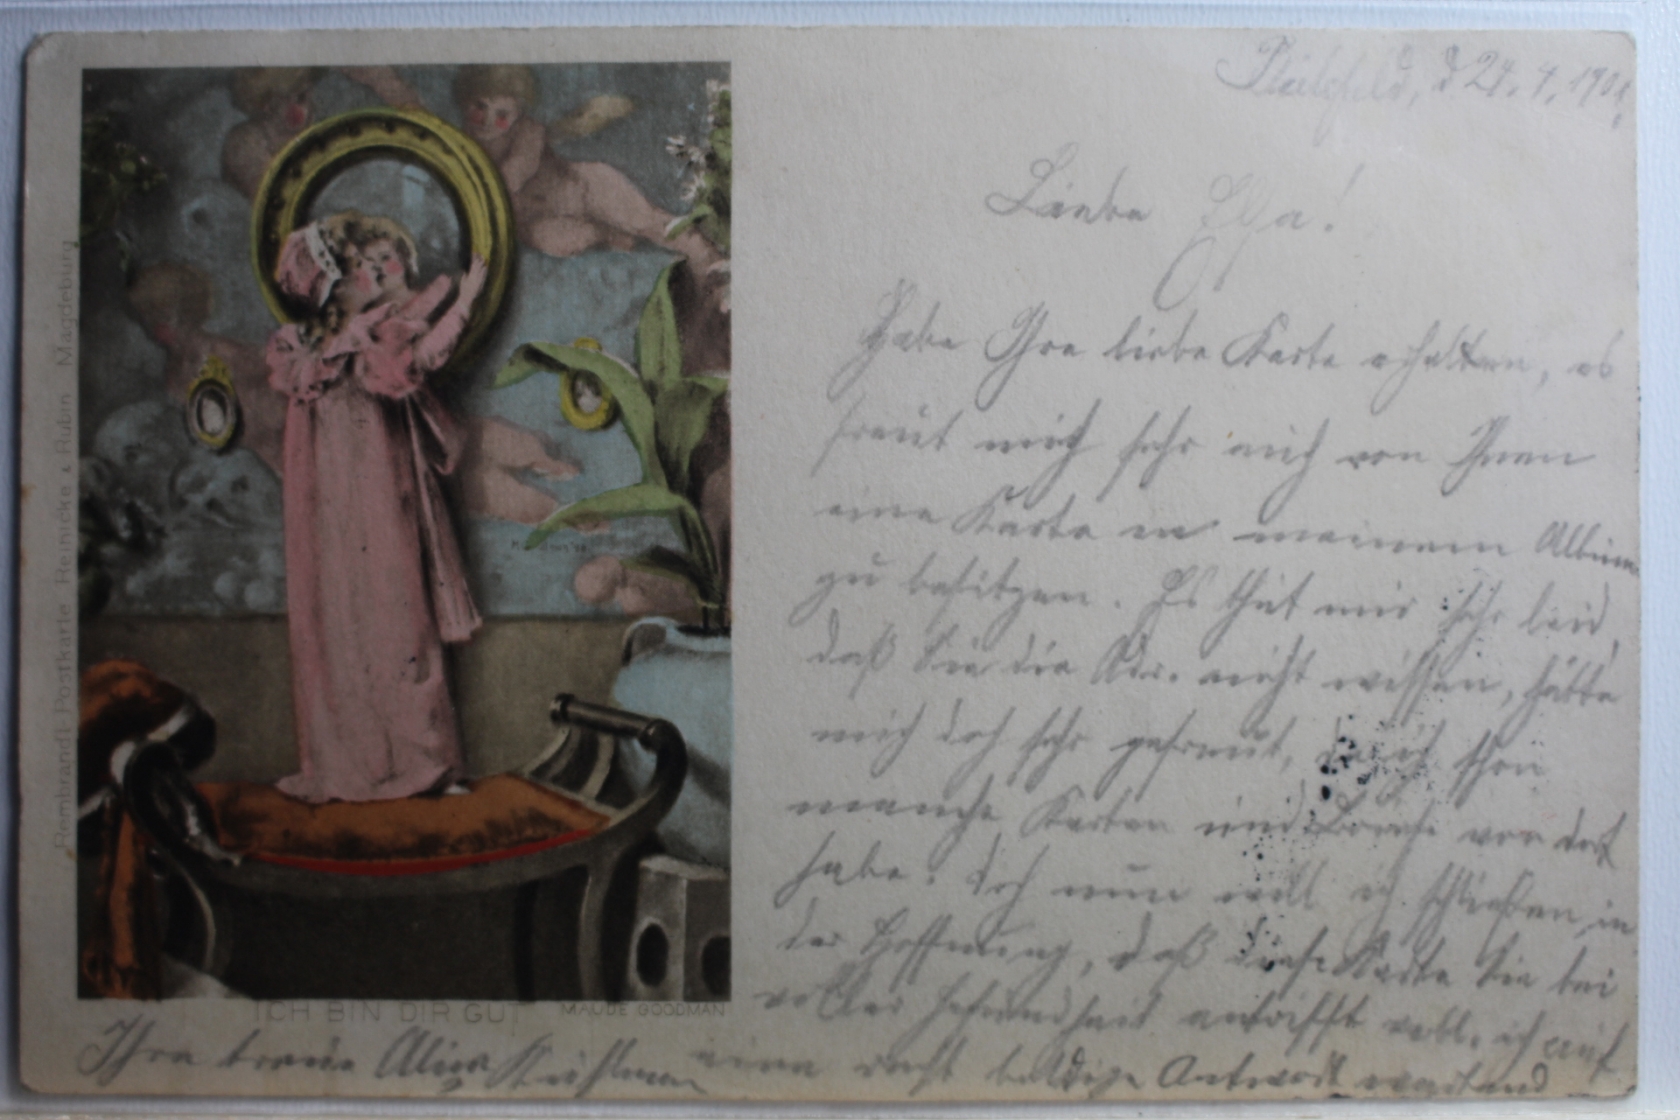 Bielefeld, d 24. 4. 1901.
Liebe Elsa!
Habe Ihre liebe Karte erhalten, es
freut mich sehr auch von Ihnen
eine Karte in meinem Album
zu besitzen. Es thut mir sehr leid,
daß Sie die Adr. nicht wissen, hätte
mich doch sehr gefreut, da ich schon
manche Karten und Briefe von dort
habe. Doch nun will ich schließen, in
der Hoffnung, daß diese Karte Sie bei
voller Gesundheit antrifft will. ich auf
eine recht baldige Antwort wartend
Ihre treue Alina
ICH BIN DIR GUT
MAUDE GOODMAN
Rembrandt-Postkarte Reinicke & Rubin Magdeburg